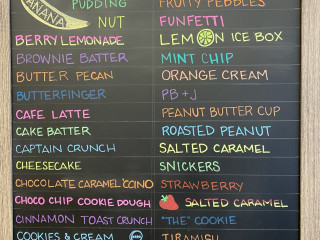 BANANA
PUDDING
NUT
BERRY LEMONADE
BROWNIE BATTER
BUTTER PECAN
BUTTERFINGER
CAFE LATTE
CAKE BATTER
CAPTAIN CRUNCH
CHEESECAKE
CHOCOLATE CARAMEL 'CCINO
CHOCO CHIP COOKIE DOUGH
CINNAMON TOAST CRUNCH
COOKIES & CREAM
FRUITY PEBBLES
FUNFETTI
LEMON ICE BOX
MINT CHIP
ORANGE CREAM
PB + J
PEANUT BUTTER CUP
ROASTED PEANUT
SALTED CARAMEL
SNICKERS
STRAWBERRY
SALTED CARAMEL
"THE" COOKIE
TIRAMISU